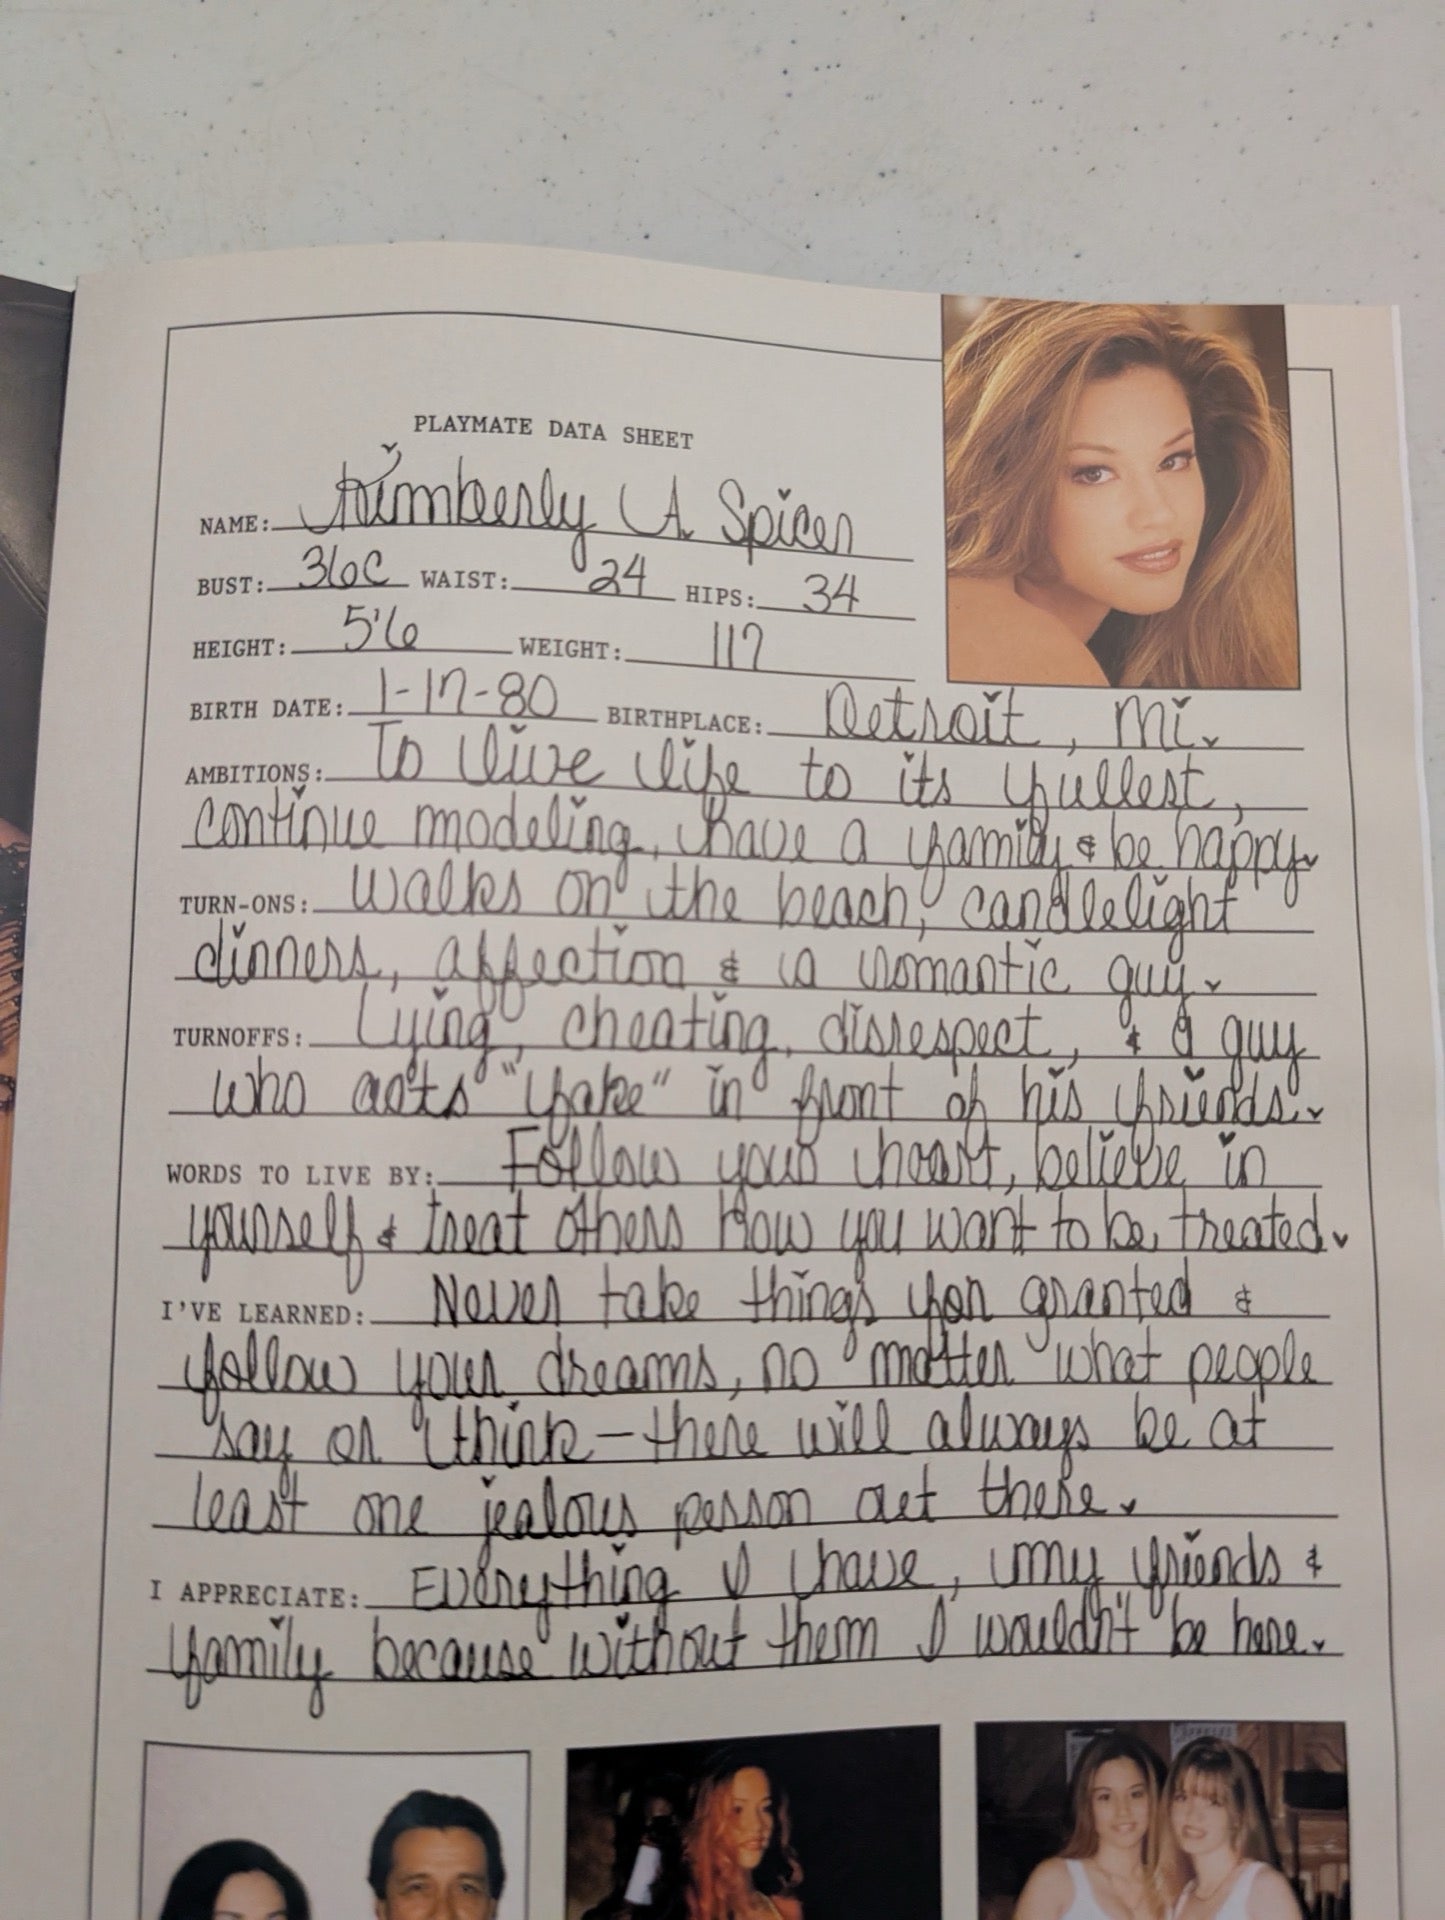 PLAYMATE DATA SHEET
NAME: Kimberly A. Spicer
BUST: 36C WAIST: 24 HIPS: 34
HEIGHT: 5'6 WEIGHT: 117
BIRTH DATE: 1-17-80 BIRTHPLACE: Detroit, Mi.
AMBITIONS: To live life to its fullest,
continue modeling, have a family & be happy.
TURN-ONS: Walks on the beach, candlelight
dinners, affection & a romantic guy.
TURNOFFS: Lying, cheating, disrespect, & a guy
who acts "fake" in front of his friends.
WORDS TO LIVE BY: Follow your heart, believe in
yourself & treat others how you want to be treated.
I'VE LEARNED: Never take things for granted &
follow your dreams, no matter what people
say or think - there will always be at
least one jealous person out there.
I APPRECIATE: Everything I have, my friends &
family because without them I wouldn't be here.